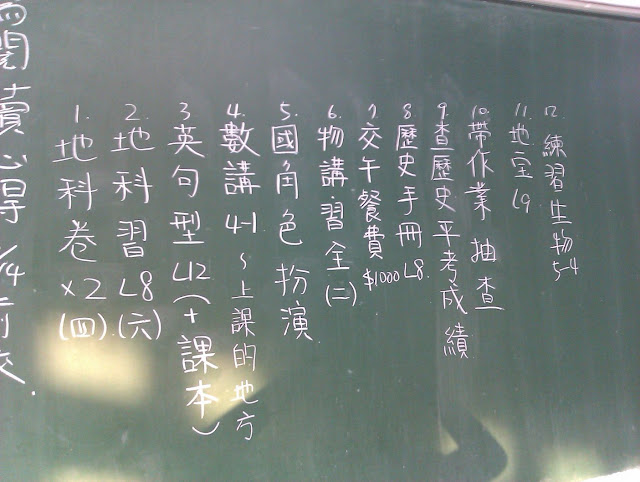 閱讀心得 1/4前交.
1. 地科卷x2(四)
2. 地科習L8(六)
3 英句型L12(+課本)
4. 數講4-1~上課的地方
5. 國角色扮演
6. 物講習全(二)
7 交午餐費$1000
8 歷史手冊L8.
9. 查歷史平考成績
10. 帶作業抽查
11. 地室L9
12. 練習生物5-4